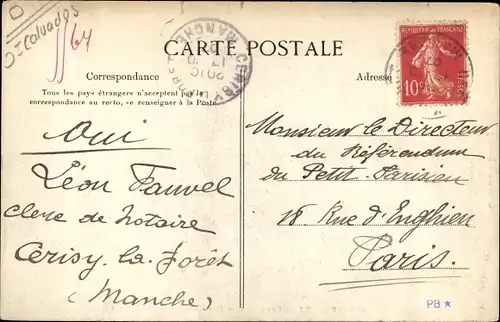 D
Jt Calvados
64
CARTE POSTALE
Correspondance
Tous les pays étrangers n'acceptent pas la
correspondance au recto, se renseigner à la Poste
Adresse
REPUBLIQUE FRANÇAISE
10
CERISY LA FORET
MANCHE
Oui
Léon Fauvel
clerc de notaire
Cerisy-la-Forêt
(Manche)
Monsieur le Directeur
du Référendum
du Petit-Parisien
18 Rue d'Enghien
Paris.
PB ★